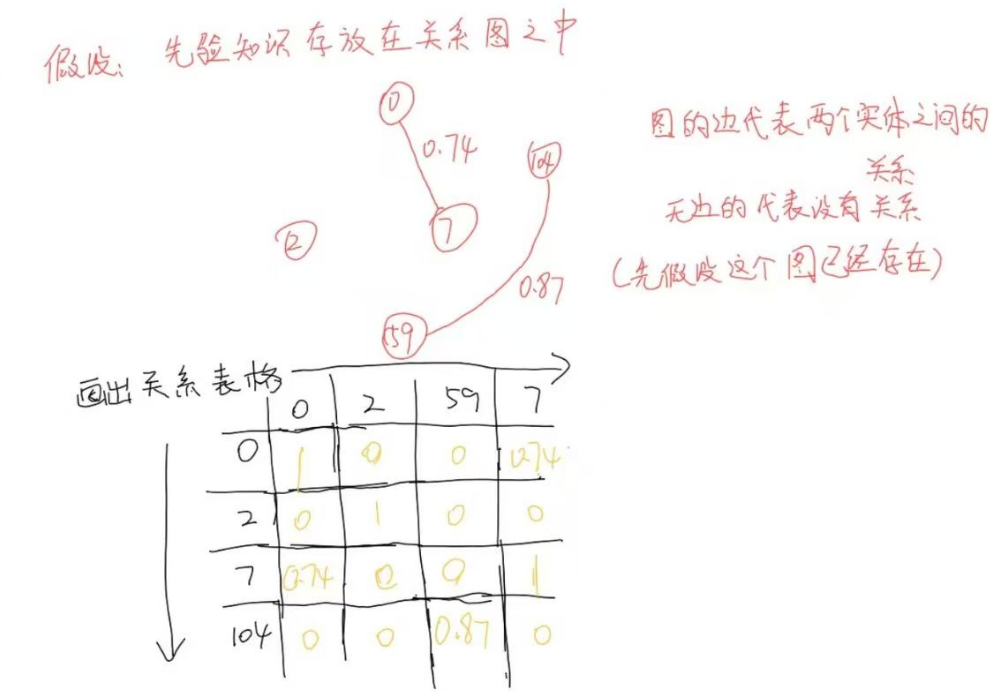 假设：先验知识存放在关系图之中
0
0.74
104
7
2
0.87
59
图的边代表两个实体之间的
关系
无边的代表没有关系
(先假设这个图已经存在)
画出关系表格
0 2 59 7
0 1 0 0 0.74
2 0 1 0 0
7 0.74 0 0 1
104 0 0 0.87 0